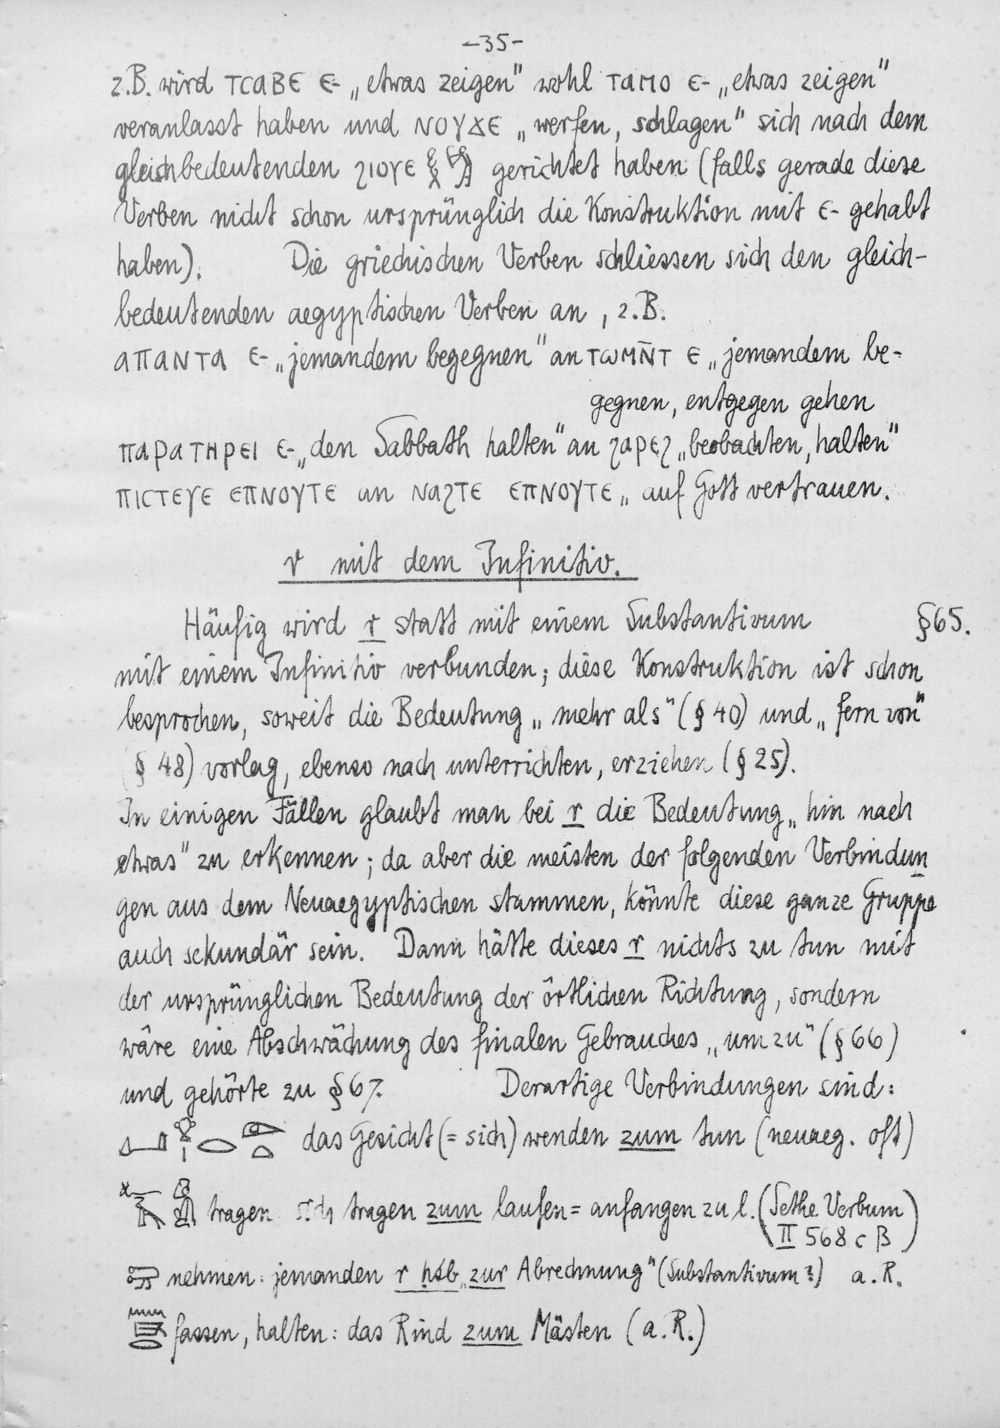 -35-
z.B. wird ⲧⲥⲁⲃⲉ ⲉ- „etwas zeigen“ wohl ⲧⲁⲙⲟ ⲉ- „etwas zeigen“
veranlasst haben und ⲛⲟⲩϫⲉ „werfen, schlagen“ sich nach dem
gleichbedeutenden ϩⲓⲟⲩⲉ gerichtet haben (falls gerade diese
Verben nicht schon ursprünglich die Konstruktion mit ⲉ- gehabt
haben). Die griechischen Verben schliessen sich den gleich-
bedeutenden aegyptischen Verben an, z.B.
ⲁⲡⲁⲛⲧⲁ ⲉ- „jemandem begegnen“ an ⲧⲱⲙⲛ̄ⲧ ⲉ „jemandem be-
gegnen, entgegen gehen
ⲡⲁⲣⲁⲧⲏⲣⲉⲓ ⲉ- „den Sabbath halten“ an ϩⲁⲣⲉϩ „beobachten, halten“
ⲡⲓⲥⲧⲉⲩⲉ ⲉⲡⲛⲟⲩⲧⲉ an ⲛⲁϩⲧⲉ ⲉⲡⲛⲟⲩⲧⲉ „ auf Gott vertrauen.
r mit dem Infinitiv.
Häufig wird r statt mit einem Substantivum §65.
mit einem Infinitiv verbunden; diese Konstruktion ist schon
besprochen, soweit die Bedeutung „mehr als“ (§ 40) und „fern von“
(§ 48) vorlag, ebenso nach unterrichten, erziehen (§ 25).
In einigen Fällen glaubt man bei r die Bedeutung „hin nach
etwas“ zu erkennen; da aber die meisten der folgenden Verbindun
gen aus dem Neuaegyptischen stammen, könnte diese ganze Gruppe
auch sekundär sein. Dann hätte dieses r nichts zu tun mit
der ursprünglichen Bedeutung der örtlichen Richtung, sondern
wäre eine Abschwächung des finalen Gebrauches „um zu“ (§ 66)
und gehörte zu § 67. Derartige Verbindungen sind:
das Gesicht (= sich) wenden zum tun (neuaeg. oft)
tragen sich tragen zum laufen = anfangen zu l. (Sethe Verbum
II 568 c β)
nehmen: jemanden r ḥśb „zur Abrechnung“ (Substantivum?) a. R.
fassen, halten: das Rind zum Mästen (a. R.)